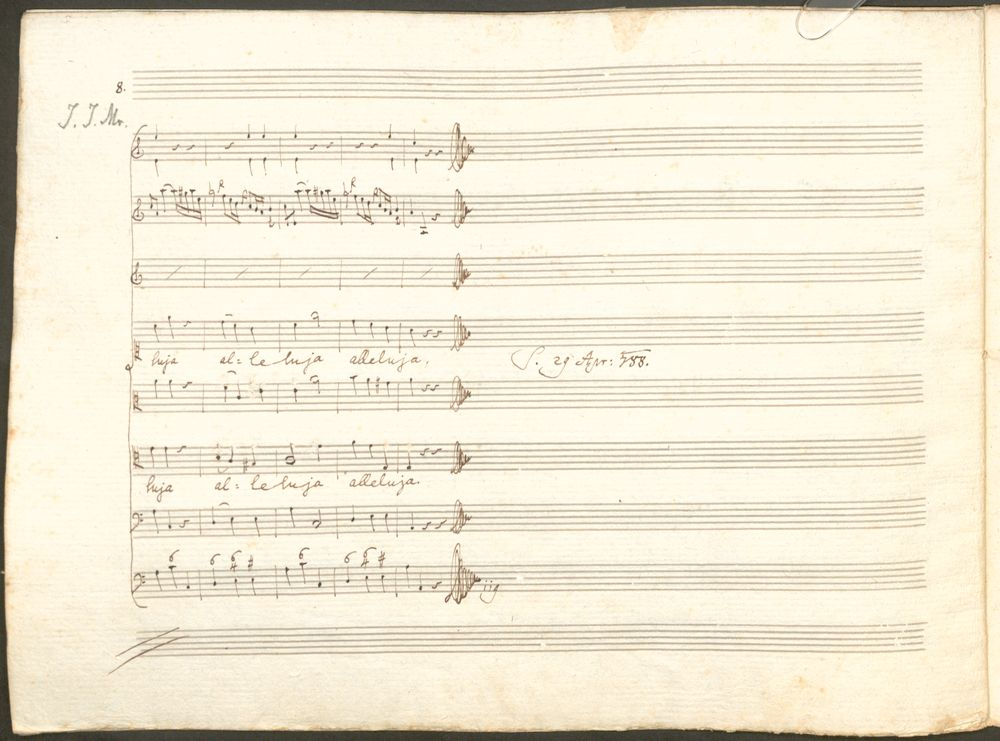 8.
J. J. Mr.
luja al=leluja alleluja.
S. 29 Apr: 788.
luja al=leluja alleluja.
6 6 6 6 6 6